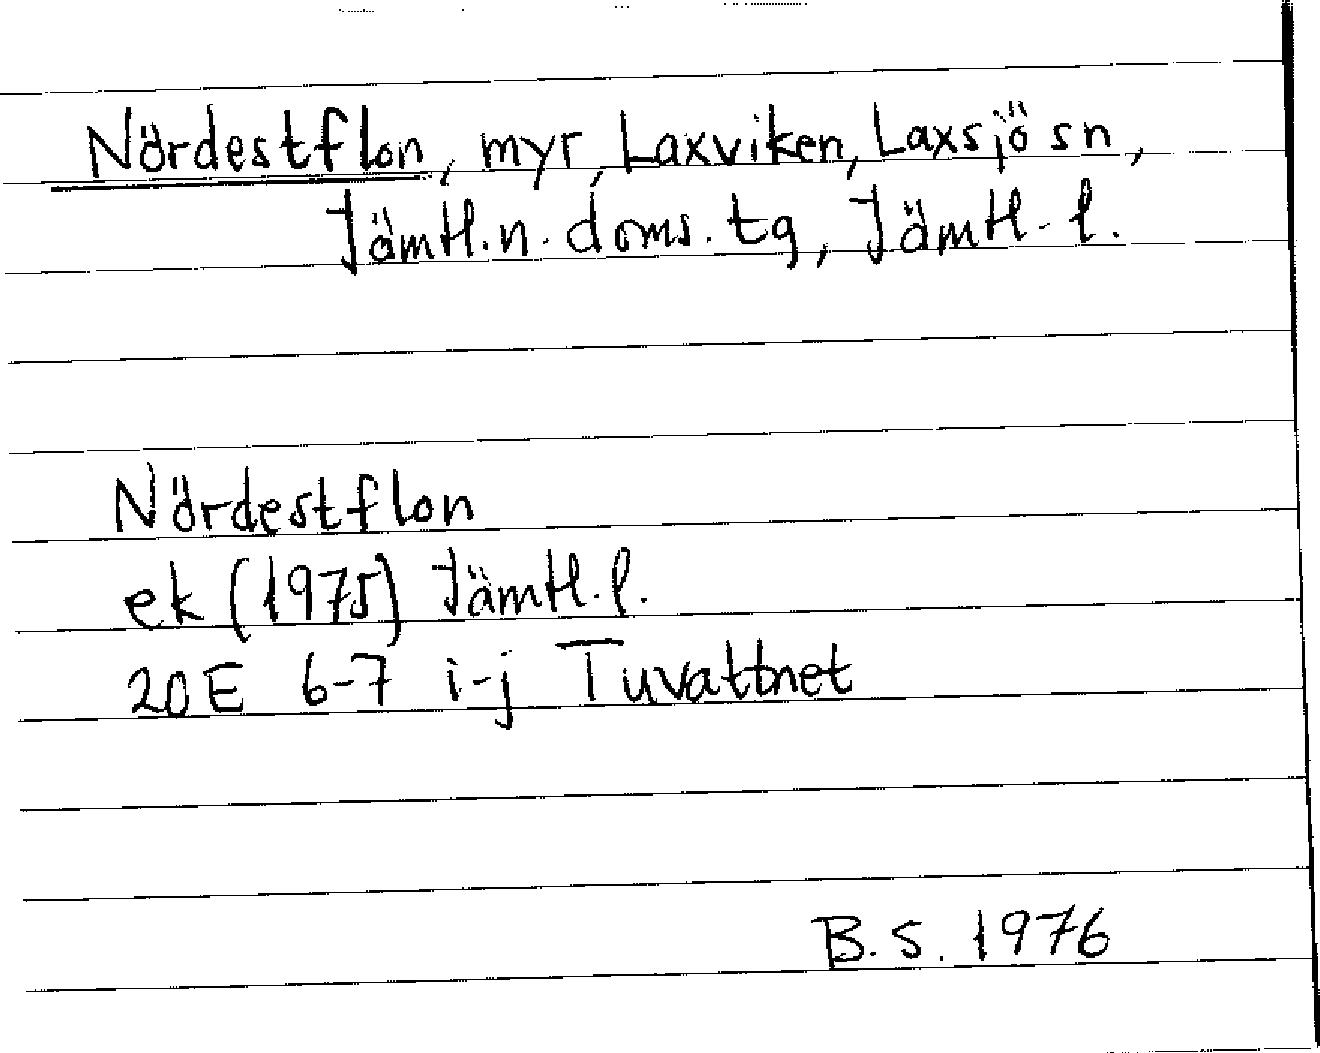 Nördestflon, myr, Laxviken, Laxsjö sn,
Jämtl.n. doms. tg, Jämtl. l.
Nördestflon
ek (1975) Jämtl. l.
20E 6-7 i-j Tuvattnet
B.S. 1976